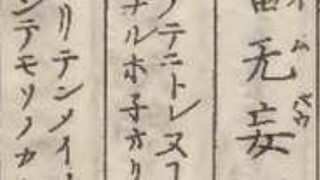 雷无妄
ノテニトレヌ
ナルホ子カリ
リテンメイ
ンテモソノカ